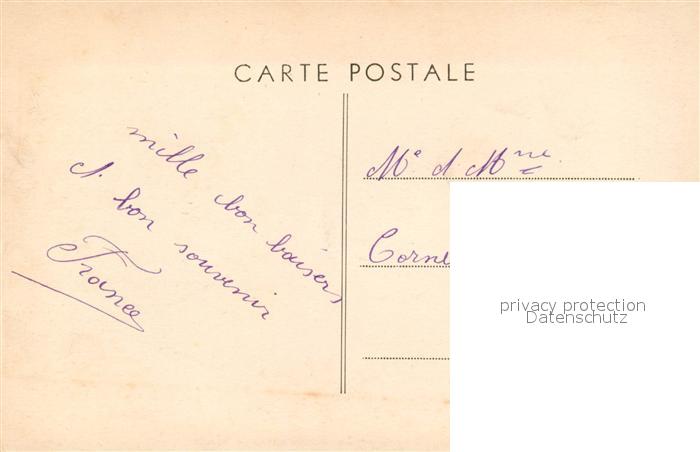 CARTE POSTALE
mille bon baisers
et bon souvenir
France
Mr et Mme
Corne
privacy protection
Datenschutz